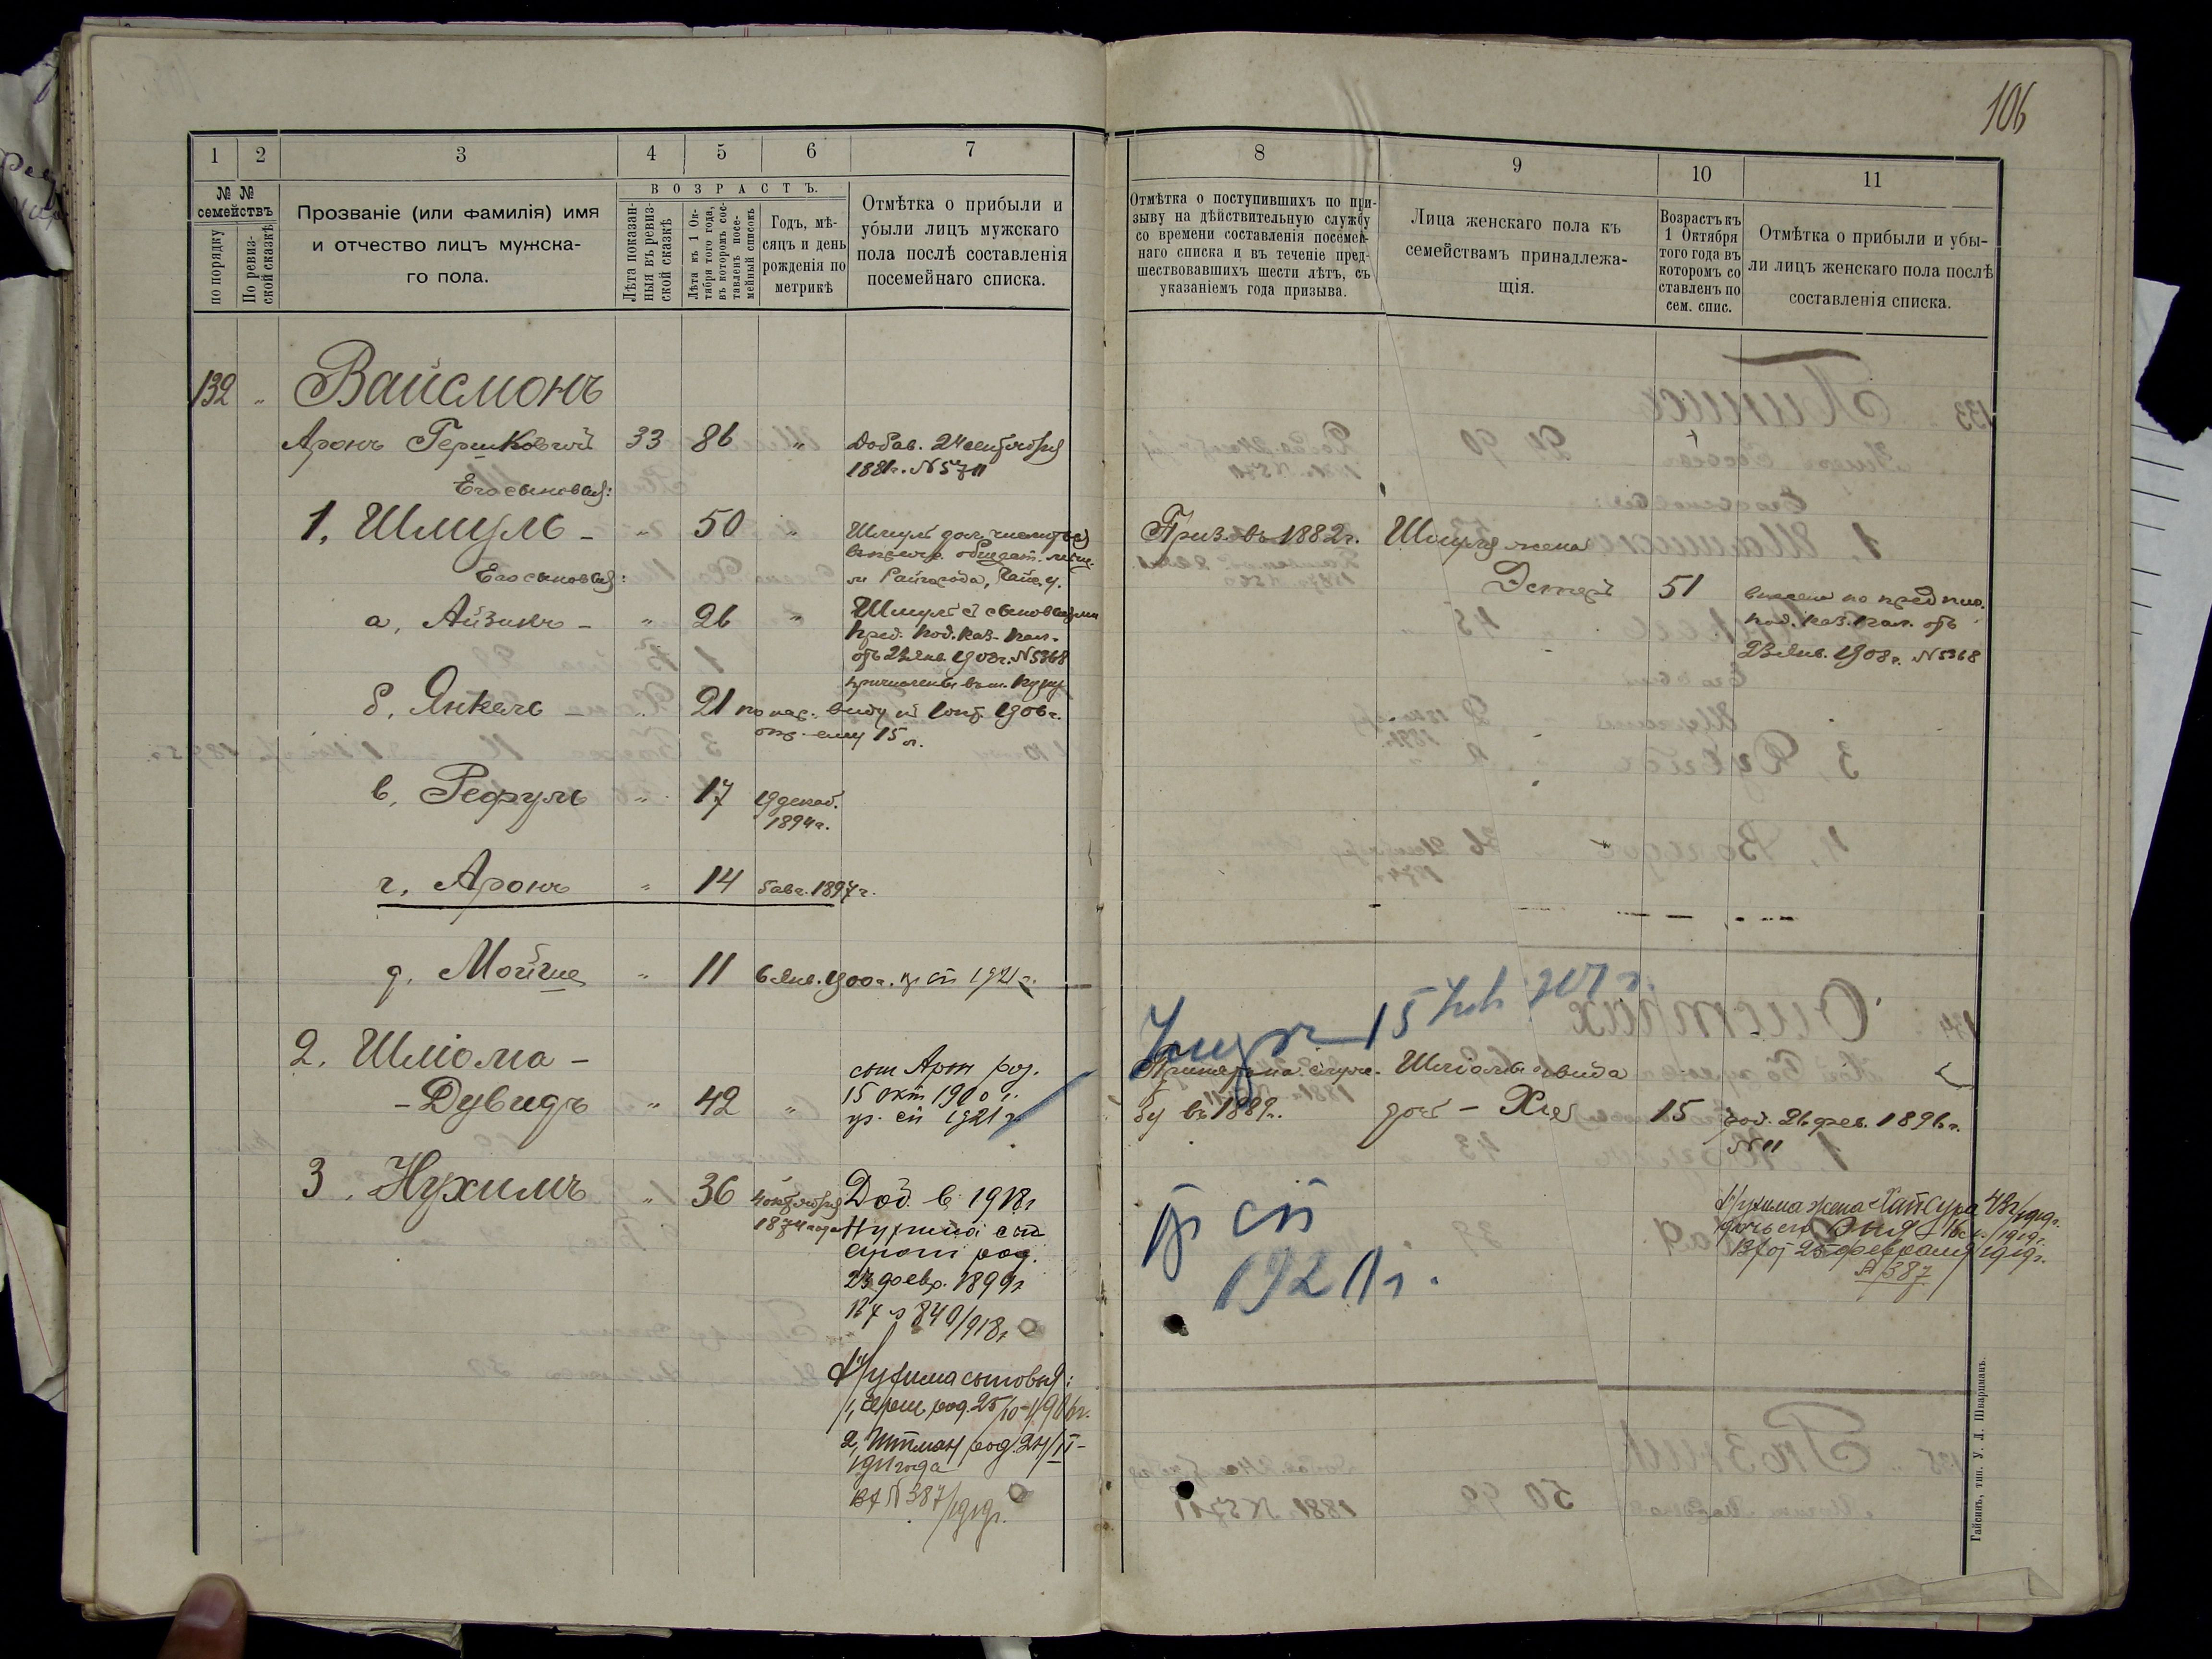 106
1
2
3
4
5
6
7
№ №
семействъ
по порядку
По ревиз-
ской сказкѣ
Прозваніе (или фамилія) имя
и отчество лицъ мужска-
го пола.
ВОЗРАСТЪ.
Лѣта показан-
ныя въ ревиз-
ской сказкѣ
Лѣта къ 1 Ок-
тября того года,
въ которомъ сос-
тавленъ посе-
мейный списокъ
Годъ, мѣ-
сяцъ и день
рожденія по
метрикѣ
Отмѣтка о прибыли и
убыли лицъ мужскаго
пола послѣ составленія
посемейнаго списка.
132 " Вайсмонъ
Аронъ Гершковичъ 33 86 " Добав. 24 сентября
1881г. № 5711
Его сыновья:
1, Шмуль - " 50 "
Его сыновья:
Райгорода, Гайс. у.
а, Айзикъ - " 26 " Шмуль съ сыновьями
пред. Под. Каз. Пал.
отъ 23 Янв. 1908г. № 5368
б, Янкель - " 21 по нар. виду къ 1 окт. 1906г.
ему 15 л.
в, Рефуль " 17 19 декаб.
1894г.
г, Аронъ " 14 5 авг. 1897г.
д, Мойше " 11 6 Янв. 1900г. пр сп 1921г.
2. Шліома -
- Дувидъ " 42 "
сын Арон род.
15 окт 1900 г.
пр. сп 1921 г
3. Нухимъ " 36 4 октября
1874 года
Доб. в 1918г
Нухима сын
Арон род.
23 февр. 1899г
№ 840/918г
Нухима сыновья:
1, Герш род. 25/10-1906г.
2, Питман род. 24/II-
1911 года
№ 387/1919г.
8
9
10
11
Отмѣтка о поступившихъ по при-
зыву на дѣйствительную службу
со времени составленія посемей-
наго списка и въ теченіе пред-
шествовавшихъ шести лѣтъ, съ
указаніемъ года призыва.
Лица женскаго пола къ
семействамъ принадлежа-
щія.
Возрастъ къ
1 Октября
того года въ
которомъ со
ставленъ по
сем. спис.
Отмѣтка о прибыли и убы-
ли лицъ женскаго пола послѣ
составленія списка.
Приз. въ 1882г. Шмуля жена
Эстеръ 51 внесена по предпис.
Под. Каз. Пал. отъ
23 Янв. 1908г. № 5368
15
Шліомы Дувида
въ 1889г. дочь - Хая 15 род. 26 фев. 1896г.
№ 11
пр сп
1921г.
Нухима жена Хая Сура 48л/1919г.
дочь его
25 февраля 1919г.
№ 387
Гайсинъ, тип. У. Л. Шваримань.